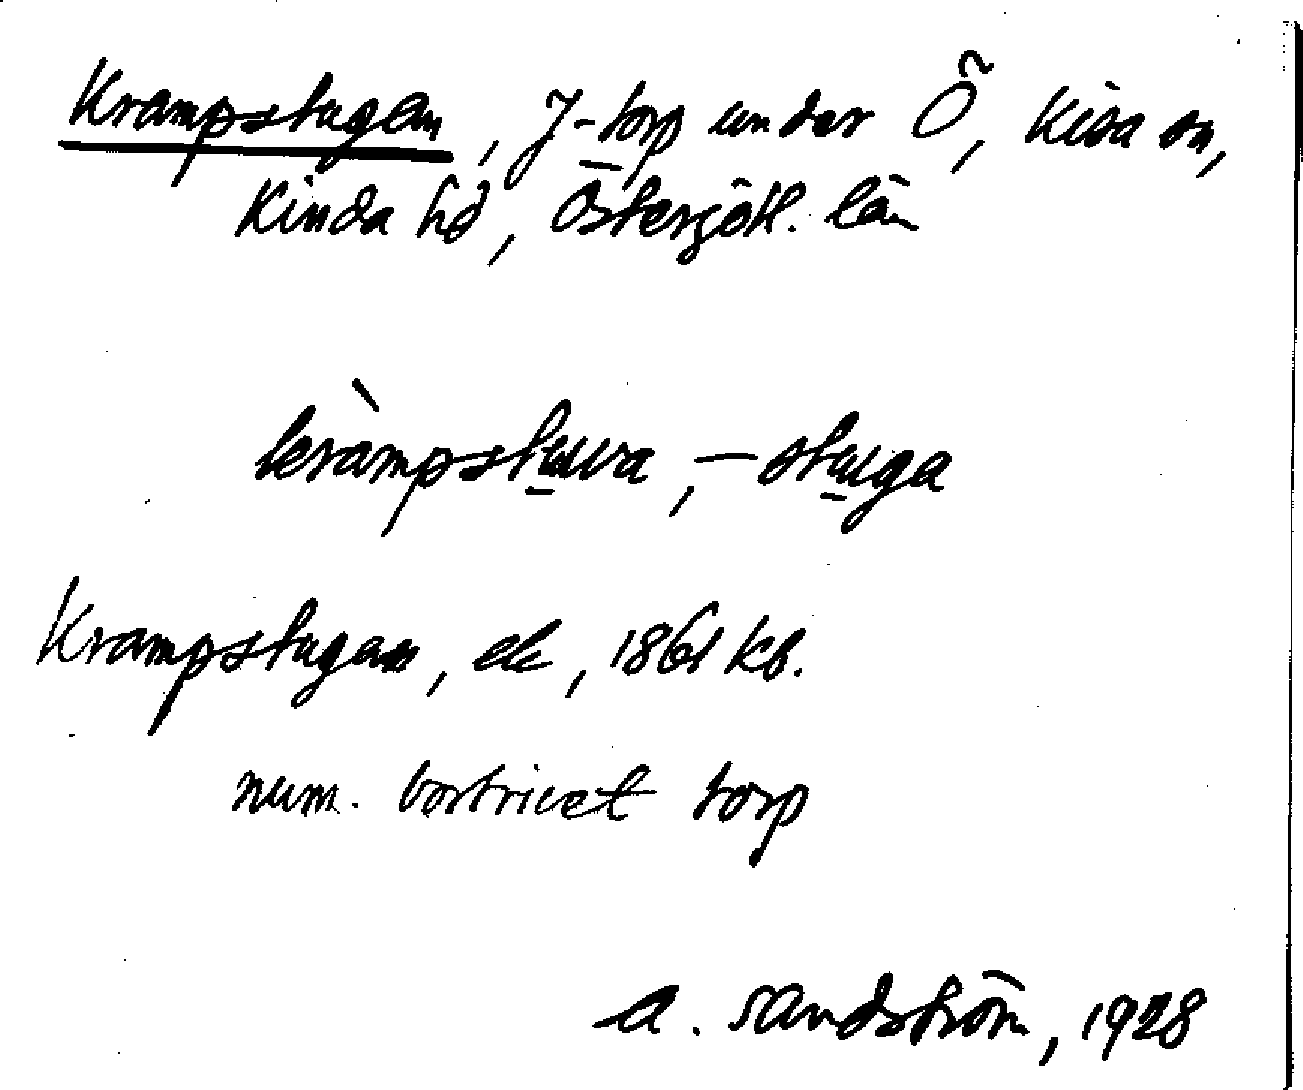 Krampstugan, J-torp under Ö, Kisa sn,
Kinda hd, Östergötl. län
kràmpstuwa, – stuga
Krampstugan, ek, 1861 Kb.
num. bortrivet torp
A. Sandström, 1928